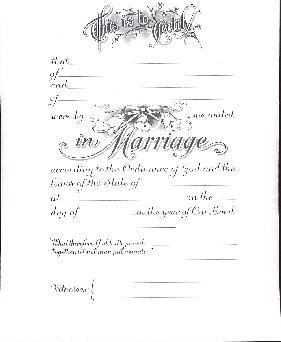 This is to Certify
that
of
and
of
were by me united
in Marriage
according to the Ordinance of God and the
Laws of the State of
at on the
day of in the year of Our Lord
What therefore God hath joined
together let not man put asunder
Witnesses